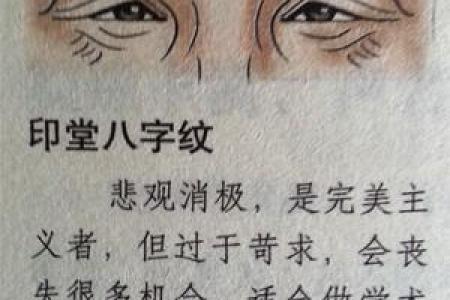 印堂八字纹
悲观消极，是完美主
义者，但过于苛求，会丧
失很多机会，适合做学术